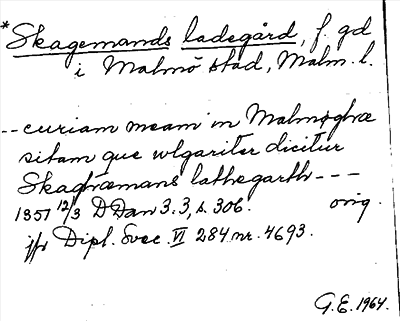 * Skagemands ladegård, f. gd
i Malmö stad, Malm. l.
-- curiam meam in Malmøghæ
sitam que wlgariter dicitur
Skaghæmans lathegarth ---
1357 12/3 DDan 3.3, s. 306. orig.
jfr Dipl. Svec. VI 284 nr. 4693.
G.E. 1964.